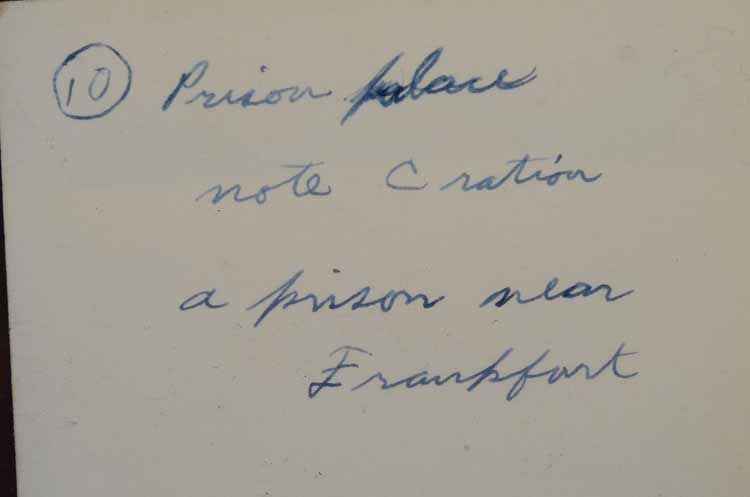 10 Prison palace
note C ration
a prison near
Frankfort